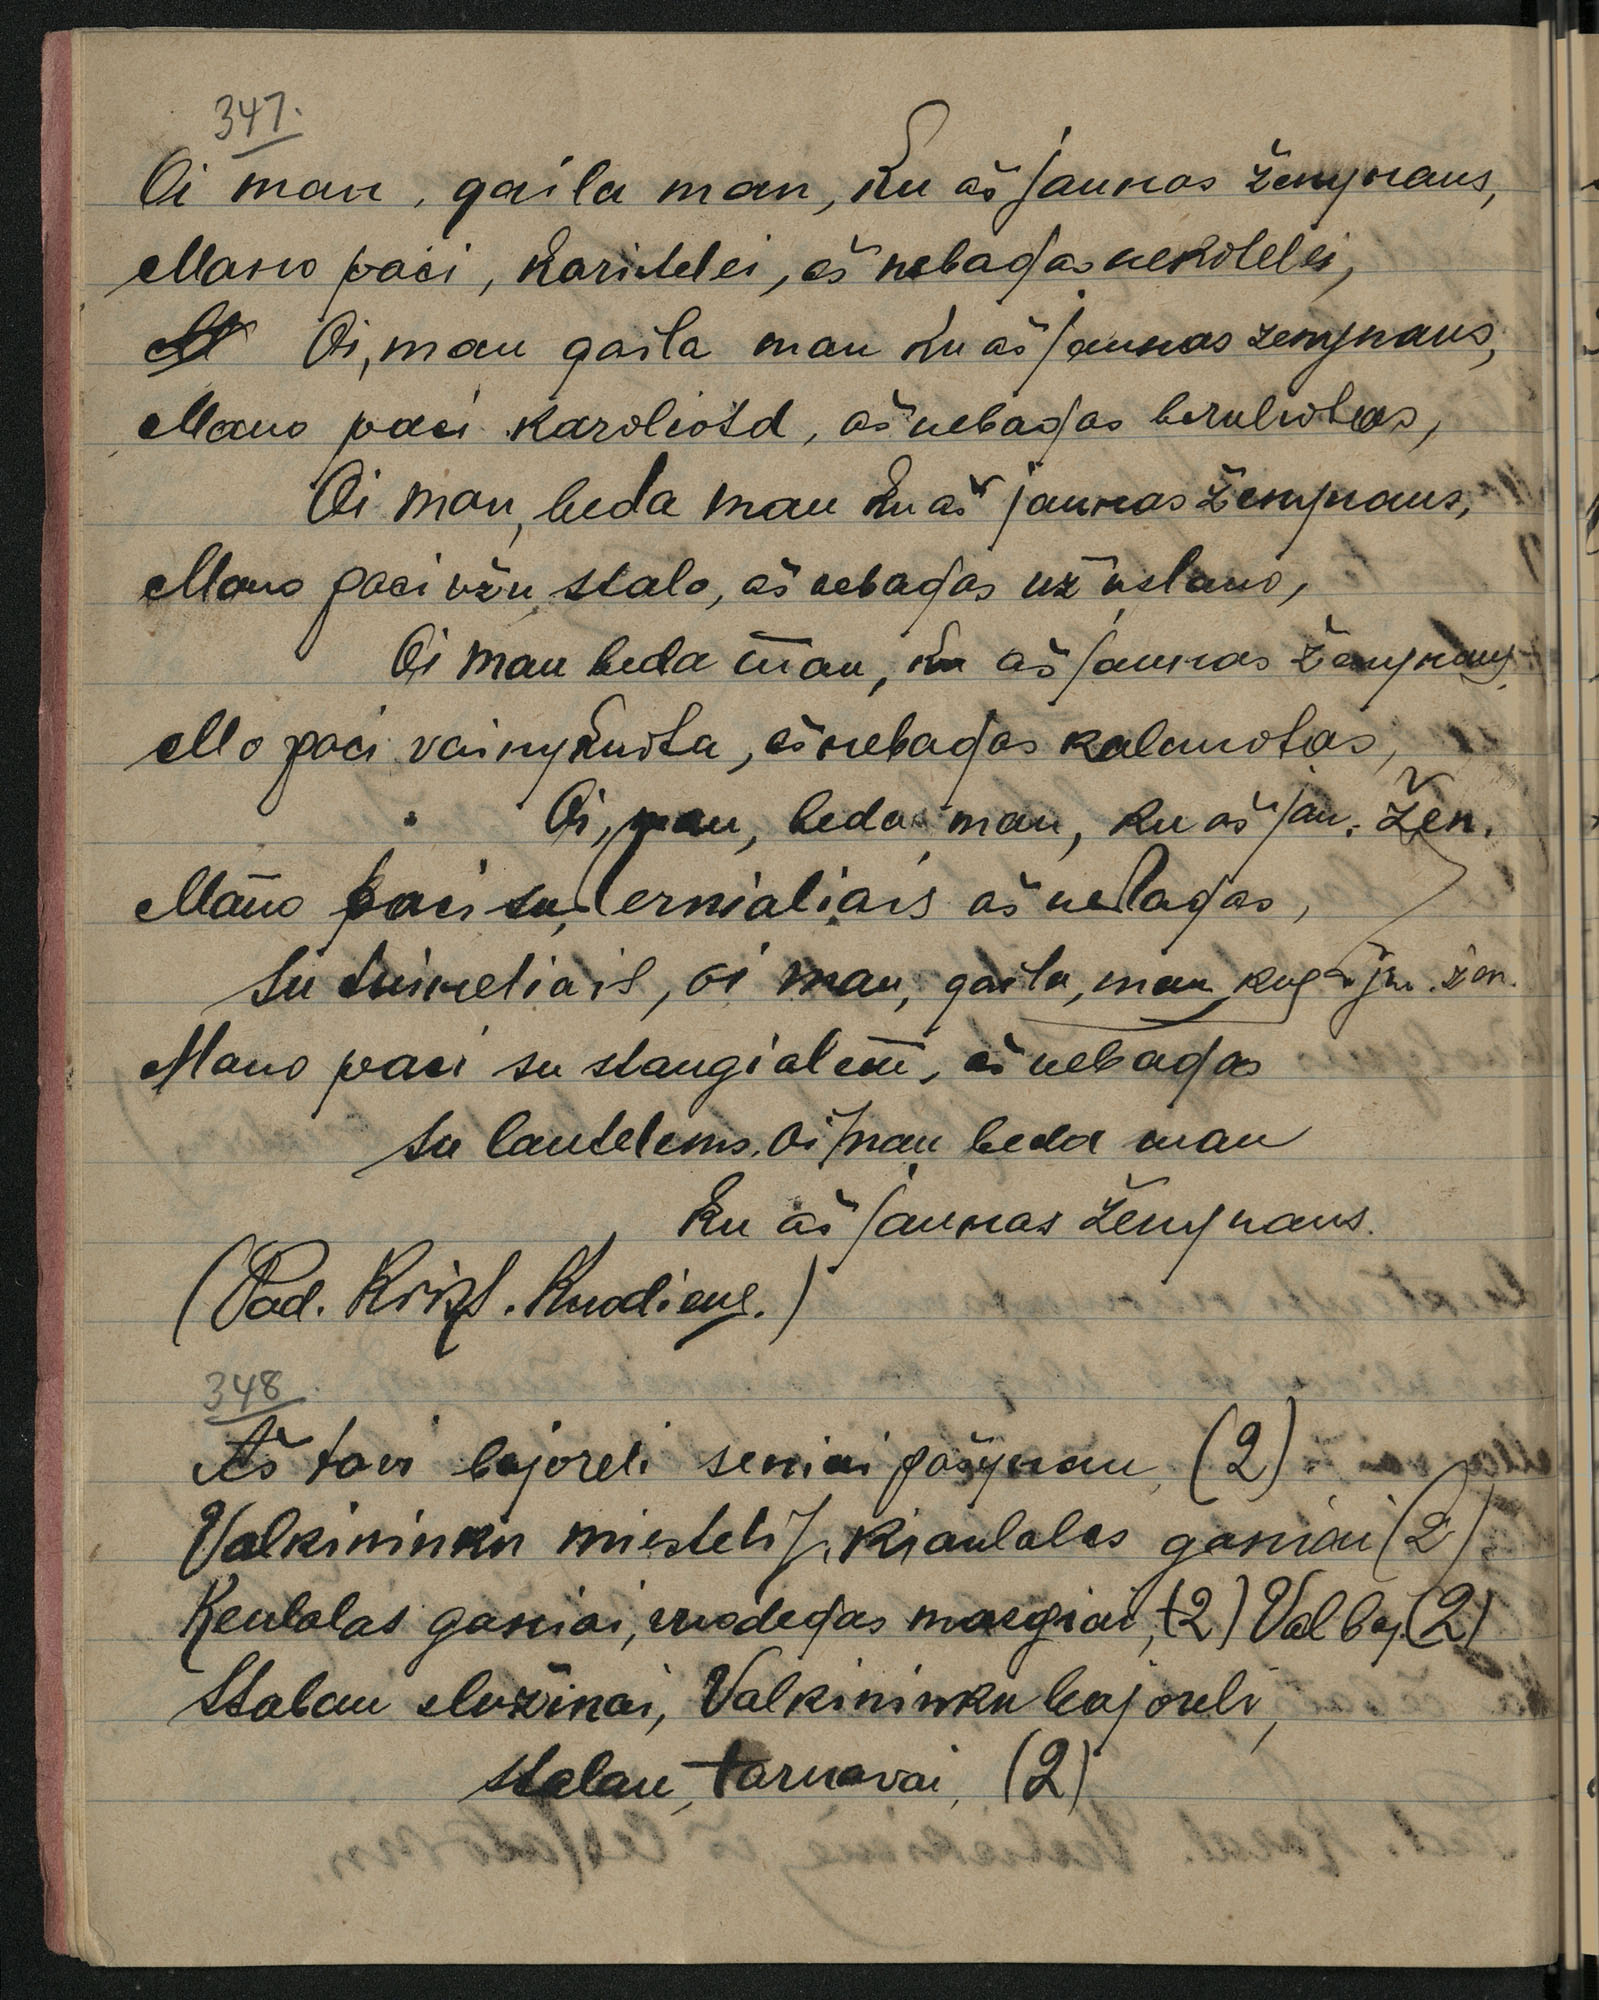 347.
Oi man, gaila man, ku aš jaunas žemynaus,
Mano paci, karitelei, aš nebagas nekotelei,
Oi, man gaila man ku aš jaunas zemynaus,
Mano paci karoliotd, aš nebagas
Oi man, beda man ku aš jaunas žemynaus,
Mano paci užu stalo, aš nebagas už uslano,
Oi man beda man, ku aš jaunas žemynaus,
Mo paci vainykuota, aš nebagas kalanotas,
Oi, man, beda man, ku aš jau. Žen.
Mano paci su bernialiais aš nebagas,
su šuineliais, oi man, gaila, man, ku aš jau. žen.
Mano paci su stangialem, aš nebagas
su lautelems. oi man beda man
ku aš jaunas žemynaus.
(Pad. Krizt. Kuodienę.)
348.
Aš tavi bajoreli seniai pašynau, (2)
Valkininku miesteli, kiaulalas ganiai (2)
Keulalas ganiai, vuodegas mazgiai, (2) Val baj. (2)
Stalan služinai, Valkininku bajoreli,
stalan, tarnavai, (2)